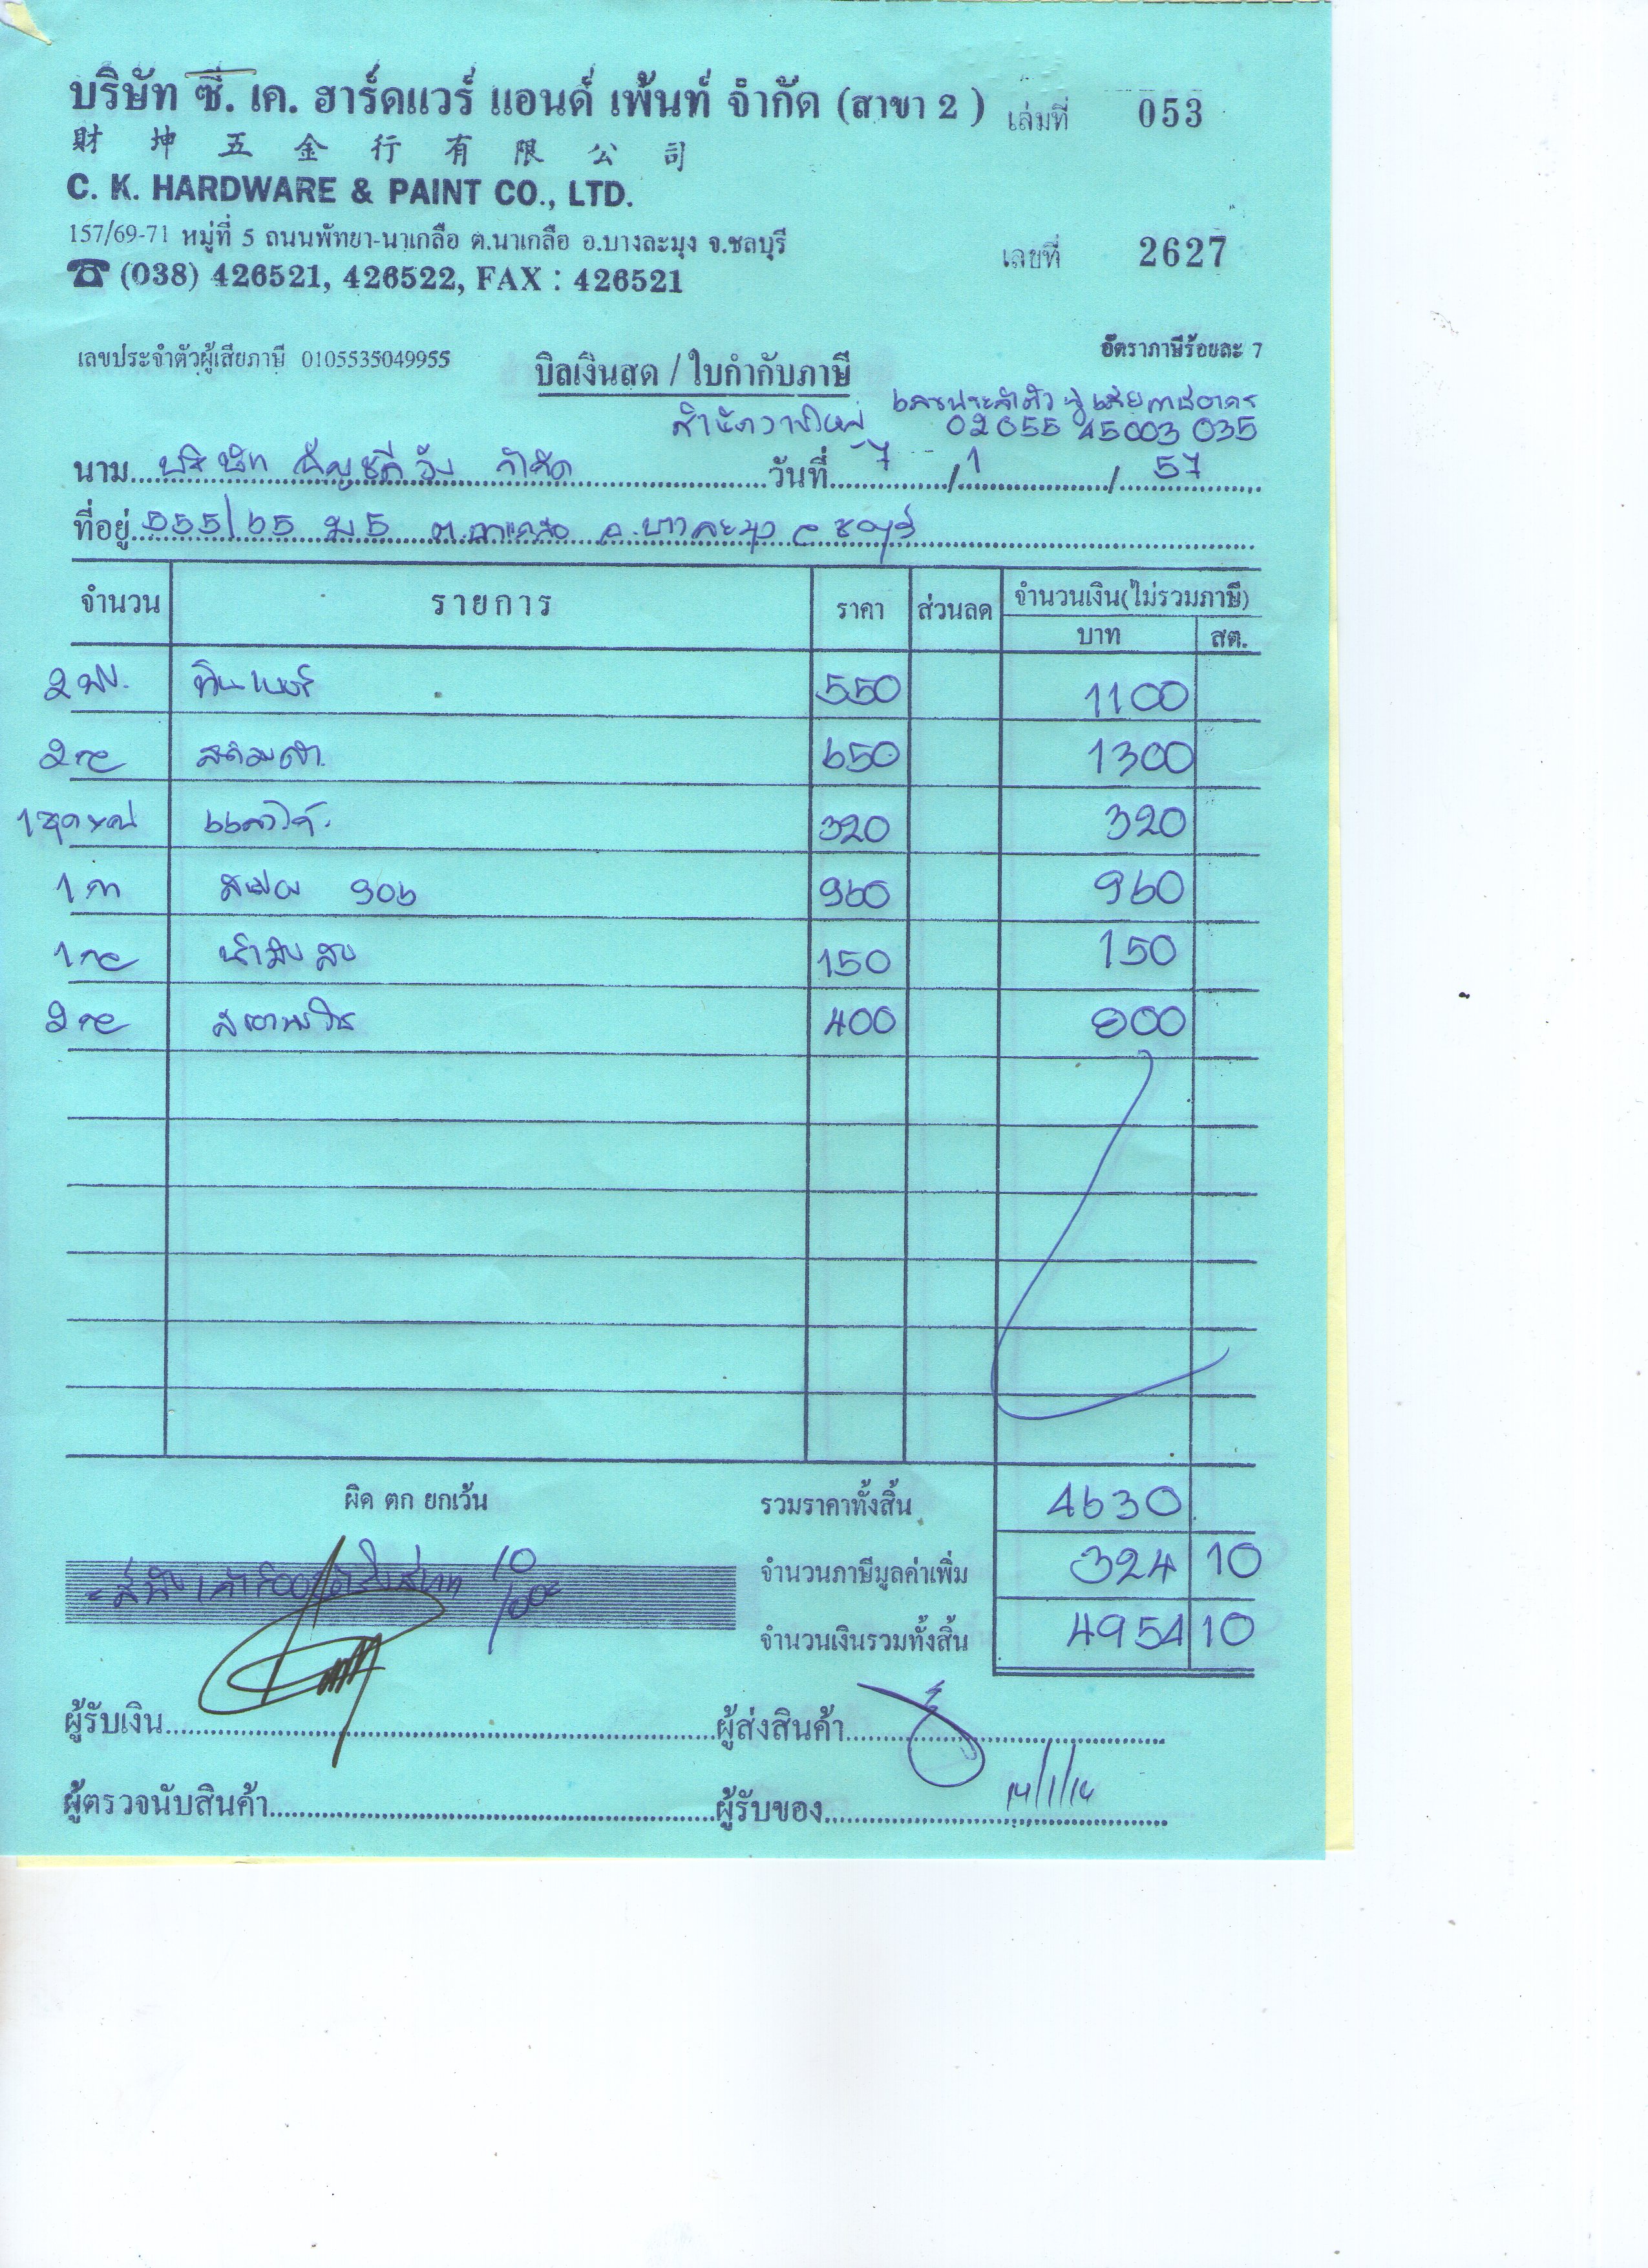 บริษัท ซี. เค. ฮาร์ดแวร์ แอนด์ เพ้นท์ จำกัด (สาขา 2 ) เล่มที่ 053
財坤五金行有限公司
C. K. HARDWARE & PAINT CO., LTD.
157/69-71 หมู่ที่ 5 ถนนพัทยา-นาเกลือ ต.นาเกลือ อ.บางละมุง จ.ชลบุรี
เลขที่ 2627
☎ (038) 426521, 426522, FAX : 426521
อัตราภาษีร้อยละ 7
เลขประจำตัวผู้เสียภาษี 0105535049955 บิลเงินสด / ใบกำกับภาษี
เลขประจำตัวผู้เสียภาษีอากร
02055 45003 035
นาม บริษัท จำกัด วันที่ 7 / 1 / 57
ที่อยู่ 555/65 ม 5 ต.นาเกลือ อ.บางละมุง จ ชลบุรี
จำนวน รายการ ราคา ส่วนลด จำนวนเงิน(ไม่รวมภาษี)
บาท สต.
2 ทินเนอร์ 550 1100
2 650 1300
1 320 320
1 906 960 960
1 150 150
2 400 800
ผิด ตก ยกเว้น รวมราคาทั้งสิ้น 4630
จำนวนภาษีมูลค่าเพิ่ม 324 10
จำนวนเงินรวมทั้งสิ้น 4954 10
ผู้รับเงิน ผู้ส่งสินค้า
ผู้ตรวจนับสินค้า ผู้รับของ 14/1/14